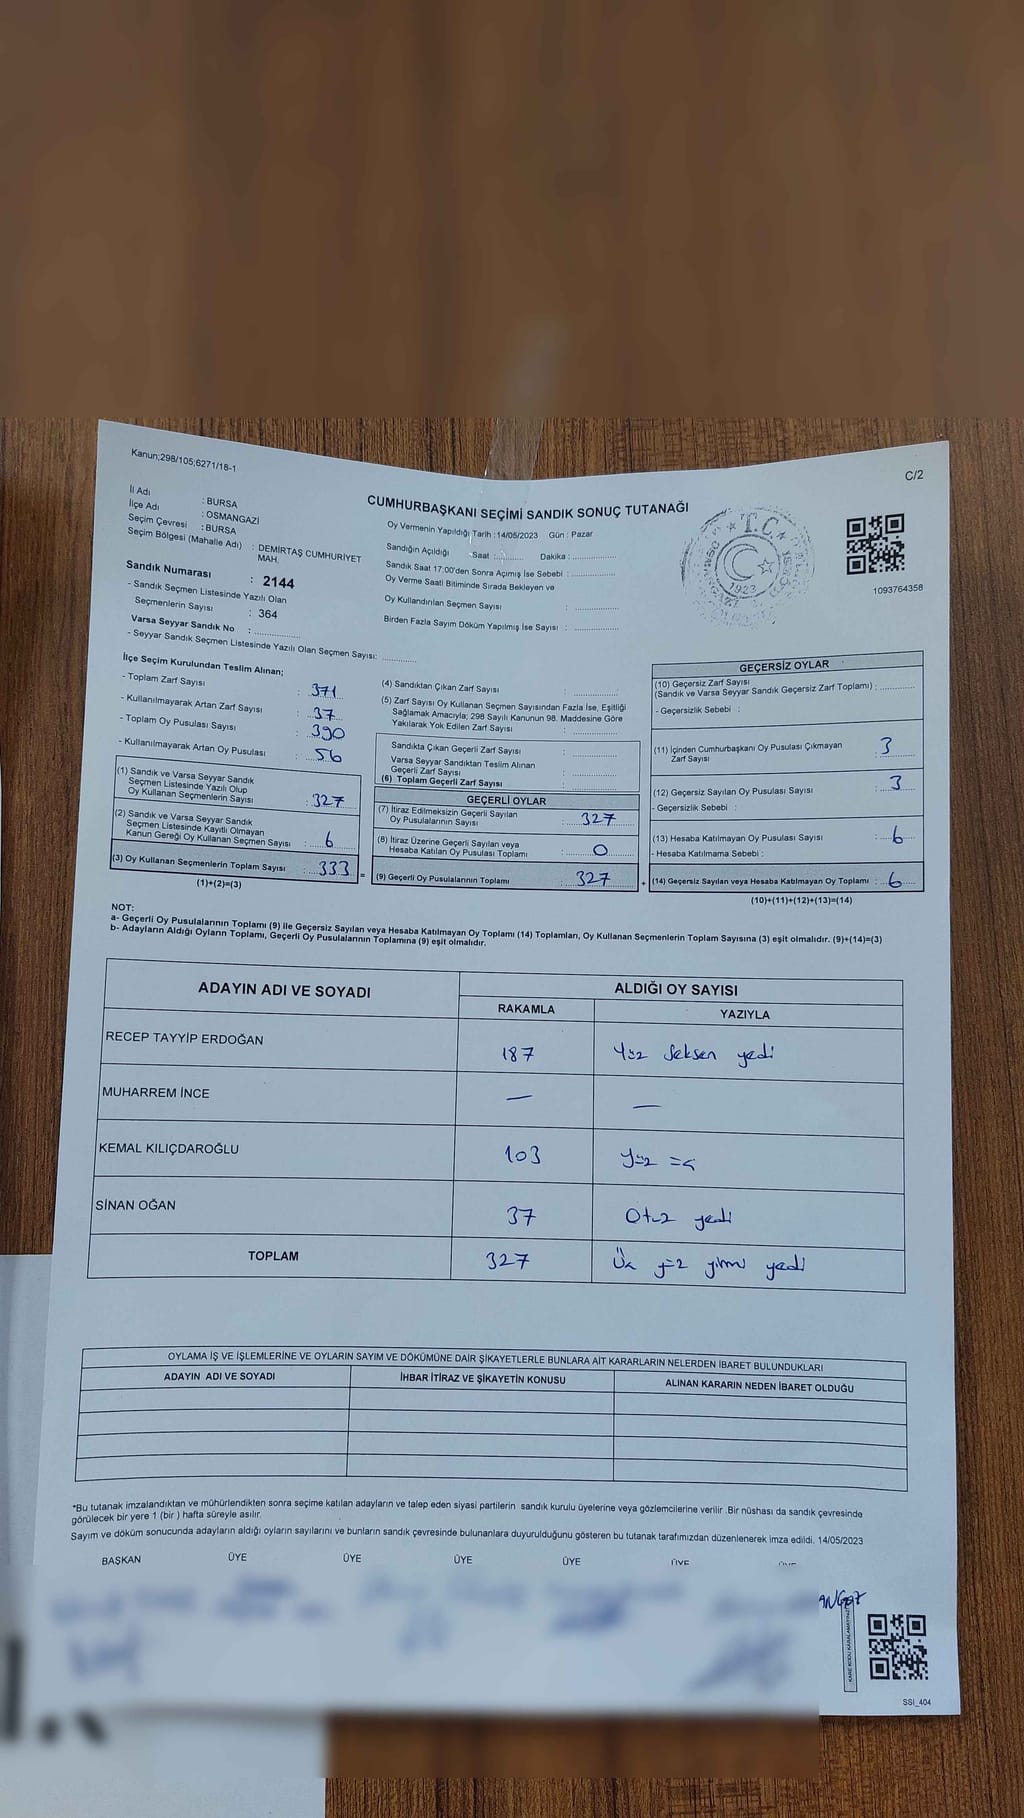 Kanun;298/105;6271/18-1
C/2
İl Adı : BURSA
İlçe Adı : OSMANGAZİ
Seçim Çevresi : BURSA
Seçim Bölgesi (Mahalle Adı) : DEMİRTAŞ CUMHURİYET MAH.
Sandık Numarası : 2144
- Sandık Seçmen Listesinde Yazılı Olan
Seçmenlerin Sayısı : 364
Varsa Seyyar Sandık No : ..............
- Seyyar Sandık Seçmen Listesinde Yazılı Olan Seçmen Sayısı: ............
CUMHURBAŞKANI SEÇİMİ SANDIK SONUÇ TUTANAĞI
Oy Vermenin Yapıldığı Tarih : 14/05/2023 Gün : Pazar
Sandığın Açıldığı Saat :......... Dakika : ..............
Sandık Saat 17:00'den Sonra Açımış İse Sebebi : ..............
Oy Verme Saati Bitiminde Sırada Bekleyen ve
Oy Kullandırılan Seçmen Sayısı : ..............
Birden Fazla Sayım Döküm Yapılmış İse Sayısı : ..............
T.C.
1923
1093764358
İlçe Seçim Kurulundan Teslim Alınan;
- Toplam Zarf Sayısı : 371
- Kullanılmayarak Artan Zarf Sayısı : 37
- Toplam Oy Pusulası Sayısı : 390
- Kullanılmayarak Artan Oy Pusulası : 56
(1) Sandık ve Varsa Seyyar Sandık
Seçmen Listesinde Yazılı Olup
Oy Kullanan Seçmenlerin Sayısı : 327
(2) Sandık ve Varsa Seyyar Sandık
Seçmen Listesinde Kayıtlı Olmayan
Kanun Gereği Oy Kullanan Seçmen Sayısı : 6
(3) Oy Kullanan Seçmenlerin Toplam Sayısı : 333 =
(1)+(2)=(3)
(4) Sandıktan Çıkan Zarf Sayısı : ..............
(5) Zarf Sayısı Oy Kullanan Seçmen Sayısından Fazla İse, Eşitliği
Sağlamak Amacıyla; 298 Sayılı Kanunun 98. Maddesine Göre
Yakılarak Yok Edilen Zarf Sayısı : ..............
Sandıkta Çıkan Geçerli Zarf Sayısı : ..............
Varsa Seyyar Sandıktan Teslim Alınan
Geçerli Zarf Sayısı : ..............
(6) Toplam Geçerli Zarf Sayısı : ..............
GEÇERLİ OYLAR
(7) İtiraz Edilmeksizin Geçerli Sayılan
Oy Pusulalarının Sayısı : 327
(8) İtiraz Üzerine Geçerli Sayılan veya
Hesaba Katılan Oy Pusulası Toplamı : 0
(9) Geçerli Oy Pusulalarının Toplamı : 327 +
GEÇERSİZ OYLAR
(10) Geçersiz Zarf Sayısı
(Sandık ve Varsa Seyyar Sandık Geçersiz Zarf Toplamı) : ..............
- Geçersizlik Sebebi :
(11) İçinden Cumhurbaşkanı Oy Pusulası Çıkmayan
Zarf Sayısı : 3
(12) Geçersiz Sayılan Oy Pusulası Sayısı : 3
- Geçersizlik Sebebi :
(13) Hesaba Katılmayan Oy Pusulası Sayısı : 6
- Hesaba Katılmama Sebebi :
(14) Geçersiz Sayılan veya Hesaba Katılmayan Oy Toplamı : 6
(10)+(11)+(12)+(13)=(14)
NOT:
a- Geçerli Oy Pusulalarının Toplamı (9) ile Geçersiz Sayılan veya Hesaba Katılmayan Oy Toplamı (14) Toplamları, Oy Kullanan Seçmenlerin Toplam Sayısına (3) eşit olmalıdır. (9)+(14)=(3)
b- Adayların Aldığı Oyların Toplamı, Geçerli Oy Pusulalarının Toplamına (9) eşit olmalıdır.
ADAYIN ADI VE SOYADI ALDIĞI OY SAYISI
RAKAMLA YAZIYLA
RECEP TAYYİP ERDOĞAN 187 Yüz Seksen yedi
MUHARREM İNCE — —
KEMAL KILIÇDAROĞLU 103 Yüz üç
SİNAN OĞAN 37 Otuz yedi
TOPLAM 327 Üç yüz yirmi yedi
OYLAMA İŞ VE İŞLEMLERİNE VE OYLARIN SAYIM VE DÖKÜMÜNE DAİR ŞİKAYETLERLE BUNLARA AİT KARARLARIN NELERDEN İBARET BULUNDUKLARI
ADAYIN ADI VE SOYADI İHBAR İTİRAZ VE ŞİKAYETİN KONUSU ALINAN KARARIN NEDEN İBARET OLDUĞU
*Bu tutanak imzalandıktan ve mühürlendikten sonra seçime katılan adayların ve talep eden siyasi partilerin sandık kurulu üyelerine veya gözlemcilerine verilir .Bir nüshası da sandık çevresinde
görülecek bir yere 1 (bir ) hafta süreyle asılır.
Sayım ve döküm sonucunda adayların aldığı oyların sayılarını ve bunların sandık çevresinde bulunanlara duyurulduğunu gösteren bu tutanak tarafımızdan düzenlenerek imza edildi. 14/05/2023
BAŞKAN ÜYE ÜYE ÜYE ÜYE ÜYE
KARE KODU KARALAMAYINIZ
SSİ_404